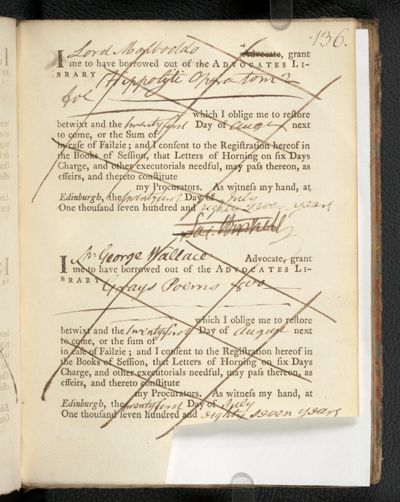 136.
I Lord Monboddo Advocate, grant
me to have borrowed out of the ADVOCATES LI-
BRARY Hippolyti Opera tom 2
fol
which I oblige me to reſtore
betwixt and the twenty first Day of August next
to come, or the Sum of
in caſe of Failzie; and I conſent to the Regiſtration hereof in
the Books of Seſſion, that Letters of Horning on ſix Days
Charge, and other executorials needful, may paſs thereon, as
effeirs, and thereto conſtitute
my Procurators. As witneſs my hand, at
Edinburgh, the twenty first Day of July
One thouſand ſeven hundred and eighty seven years
I Mr George Wallace Advocate, grant
me to have borrowed out of the ADVOCATES LI-
BRARY Grays Poems 8vo
which I oblige me to reſtore
betwixt and the twenty first Day of August next
to come, or the ſum of
in caſe of Failzie; and I conſent to the Regiſtration hereof in
the Books of Seſſion, that Letters of Horning on ſix Days
Charge, and other executorials needful, may paſs thereon, as
effeirs, and thereto conſtitute
my Procurators. As witneſs my hand, at
Edinburgh, the twenty first Day of July
One thouſand ſeven hundred and eighty seven years